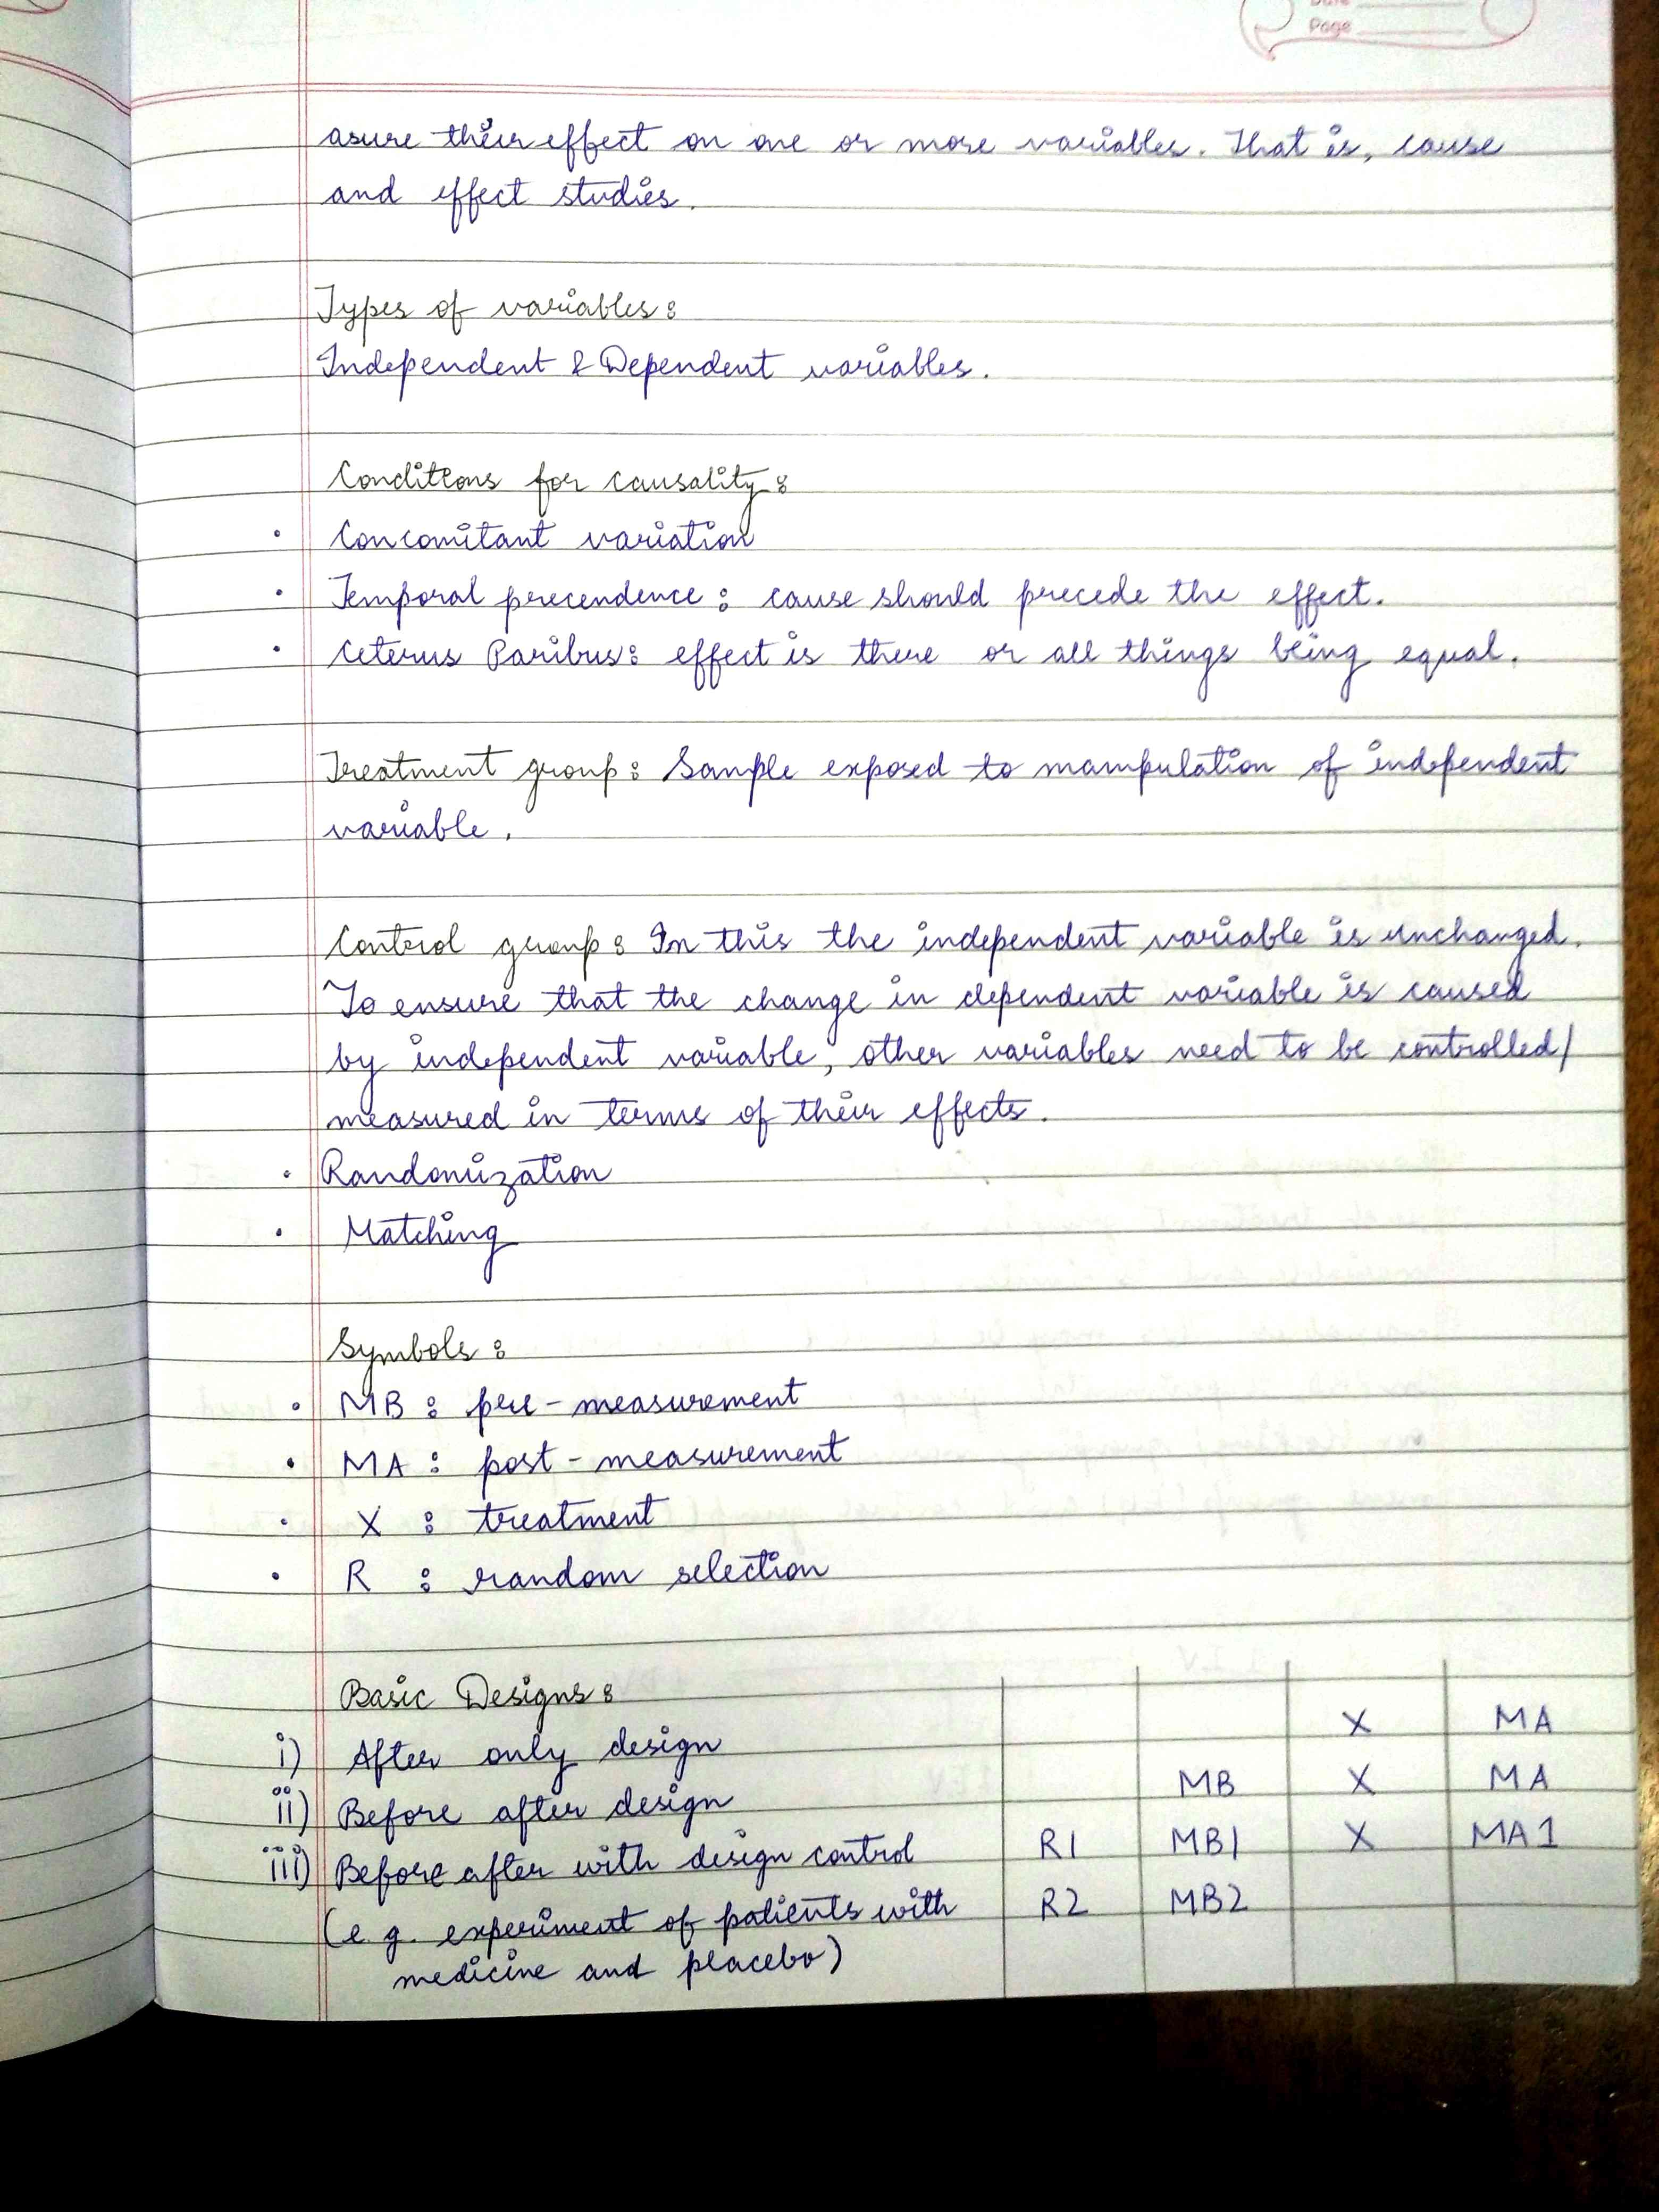 Page
asure their effect on one or more variables. That is, cause
and effect studies.
Types of variables:
Independent & Dependent variables.
Conditions for causality:
• Concomitant variation
• Temporal precendence: cause should precede the effect.
• Ceterus Paribus: effect is there or all things being equal.
Treatment group: Sample exposed to manipulation of independent
variable.
Control group: In this the independent variable is unchanged.
To ensure that the change in dependent variable is caused
by independent variable, other variables need to be controlled/
measured in terms of their effects.
• Randomization
• Matching
Symbols:
• MB : pre-measurement
• MA : post-measurement
• X : treatment
• R : random selection
Basic Designs:
i) After only design X MA
ii) Before after design MB X MA
iii) Before after with design control R1 MB1 X MA1
(e.g. experiment of patients with R2 MB2
medicine and placebo)